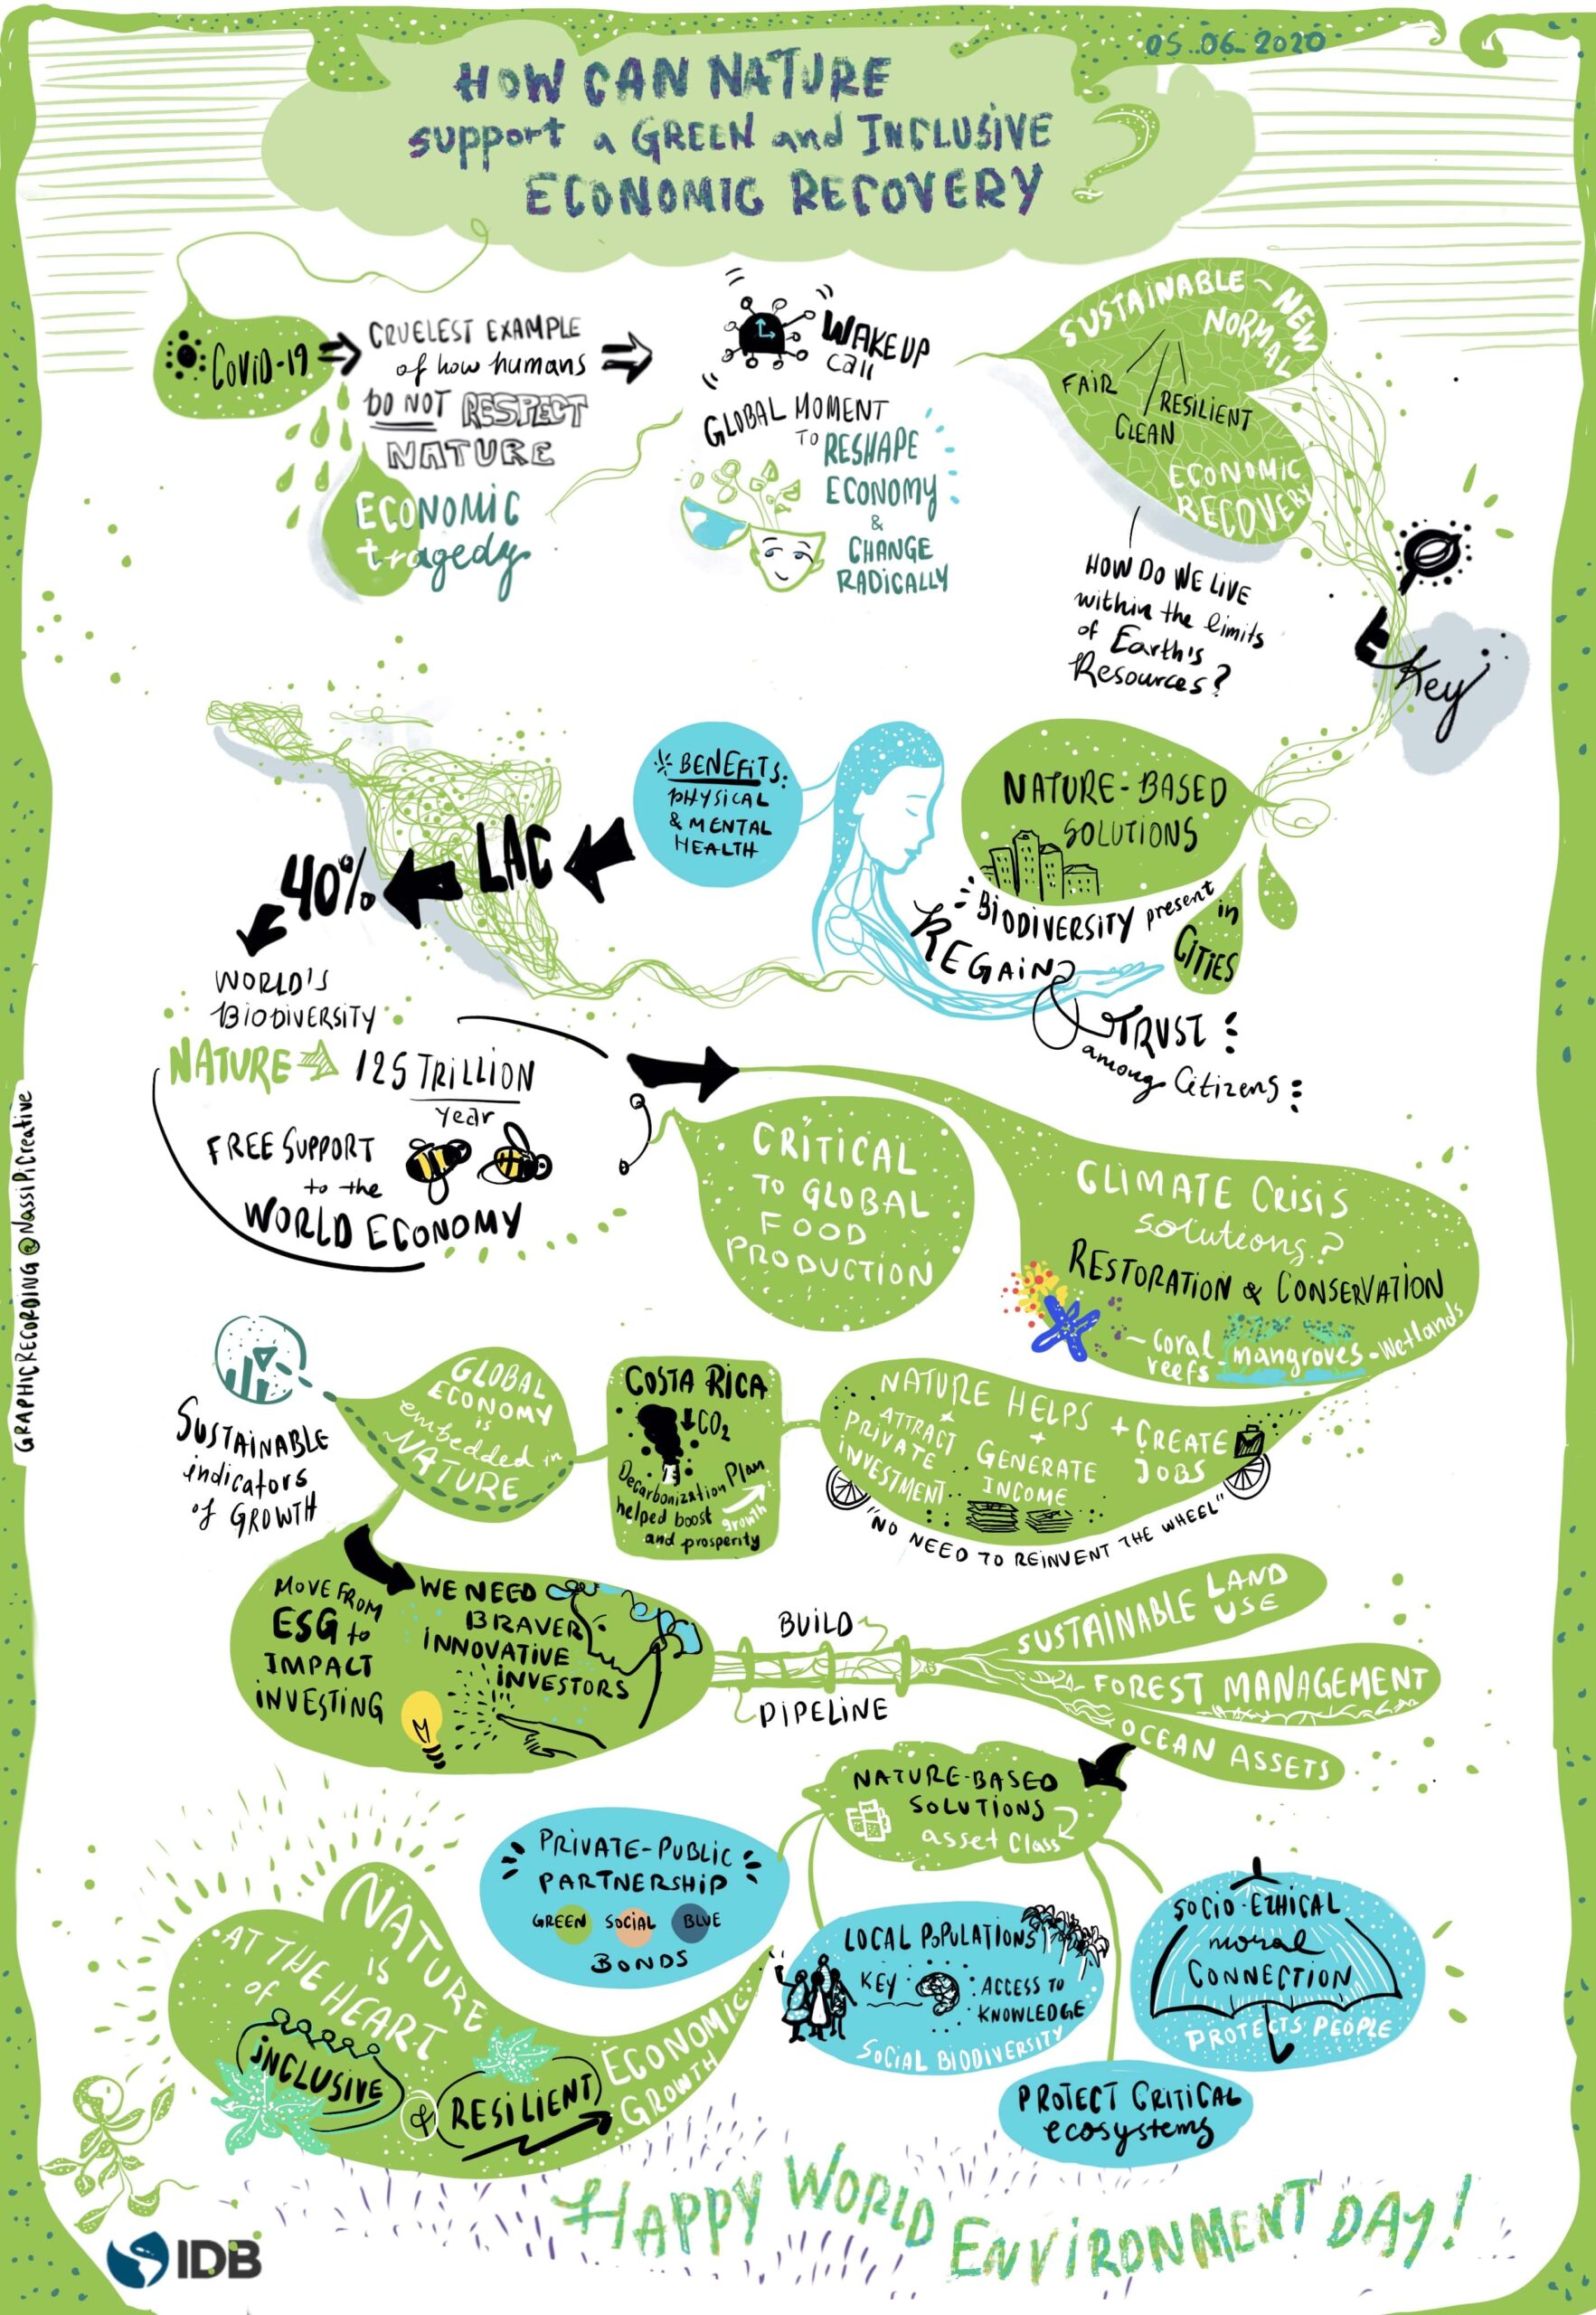 05.06.2020
HOW CAN NATURE
support a GREEN and INCLUSIVE
ECONOMIC RECOVERY ?
COVID-19
CRUELEST EXAMPLE
of how humans
DO NOT RESPECT
NATURE
ECONOMIC
tragedy
WAKE UP
call
GLOBAL MOMENT
TO RESHAPE
ECONOMY
&
CHANGE
RADICALLY
SUSTAINABLE - NEW
NORMAL
FAIR
CLEAN
RESILIENT
ECONOMIC
RECOVERY
HOW DO WE LIVE
within the limits
of Earth's
Resources?
Key
NATURE-BASED
SOLUTIONS
BIODIVERSITY present
in
CITIES
REGAIN
TRUST
among Citizens
BENEFITS:
PHYSICAL
& MENTAL
HEALTH
LAC
40%
WORLD'S
BIODIVERSITY
NATURE 125 TRILLION
year
FREE SUPPORT
to the
WORLD ECONOMY
CRITICAL
TO GLOBAL
FOOD
PRODUCTION
CLIMATE CRISIS
solutions?
RESTORATION & CONSERVATION
- coral
reefs - mangroves - Wetlands
NATURE HELPS
+
ATTRACT
PRIVATE
INVESTMENT
+
GENERATE
INCOME
+ CREATE
JOBS
"NO NEED TO REINVENT THE WHEEL"
COSTA RICA
CO2
Decarbonization Plan
helped boost growth
and prosperity
GLOBAL
ECONOMY
is
embedded in
NATURE
SUSTAINABLE
indicators
of GROWTH
MOVE FROM
ESG to
IMPACT
INVESTING
WE NEED
BRAVER
INNOVATIVE
INVESTORS
BUILD
PIPELINE
SUSTAINABLE LAND
USE
FOREST MANAGEMENT
OCEAN ASSETS
NATURE-BASED
SOLUTIONS
asset class
PRIVATE-PUBLIC
PARTNERSHIP
GREEN SOCIAL BLUE
BONDS
LOCAL POPULATIONS
KEY : ACCESS TO
KNOWLEDGE
SOCIAL BIODIVERSITY
SOCIO-ETHICAL
moral
CONNECTION
PROTECTS PEOPLE
PROTECT CRITICAL
ecosystems
NATURE
IS
AT THE HEART
of
INCLUSIVE
& RESILIENT
ECONOMIC
GROWTH
HAPPY WORLD
ENVIRONMENT DAY!
IDB
GRAPHIC RECORDING @NassiPiCreative